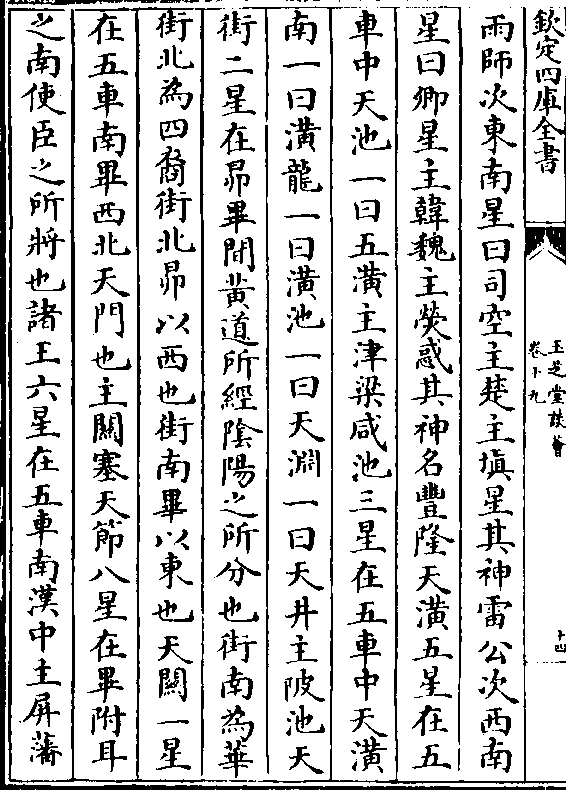 欽定四庫全書
玉芝堂談薈
卷十九
十四
雨師次東南星曰司空主楚主塡星其神雷公次西南
星曰卿星主韓魏主熒惑其神名豐隆天潢五星在五
車中天池一曰五潢主津梁咸池三星在五車中天潢
南一曰潢龍一曰潢池一曰天淵一曰天井主陂池天
街二星在昴畢間黄道所經陰陽之所分也街南為華
街北為四裔街北昴以西也街南畢以東也天關一星
在五車南畢西北天門也主關塞天節八星在畢附耳
之南使臣之所將也諸王六星在五車南漢中主屏藩